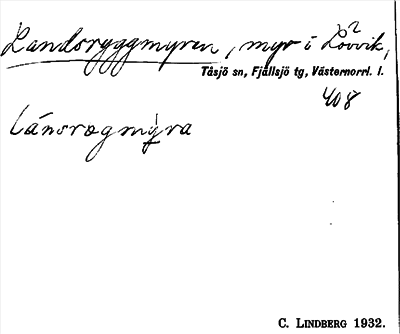 Landsryggmyren, myr i Lövvik,
Tåsjö sn, Fjällsjö tg, Västernorrl. l.
408
lánsrogmýra
C. LINDBERG 1932.